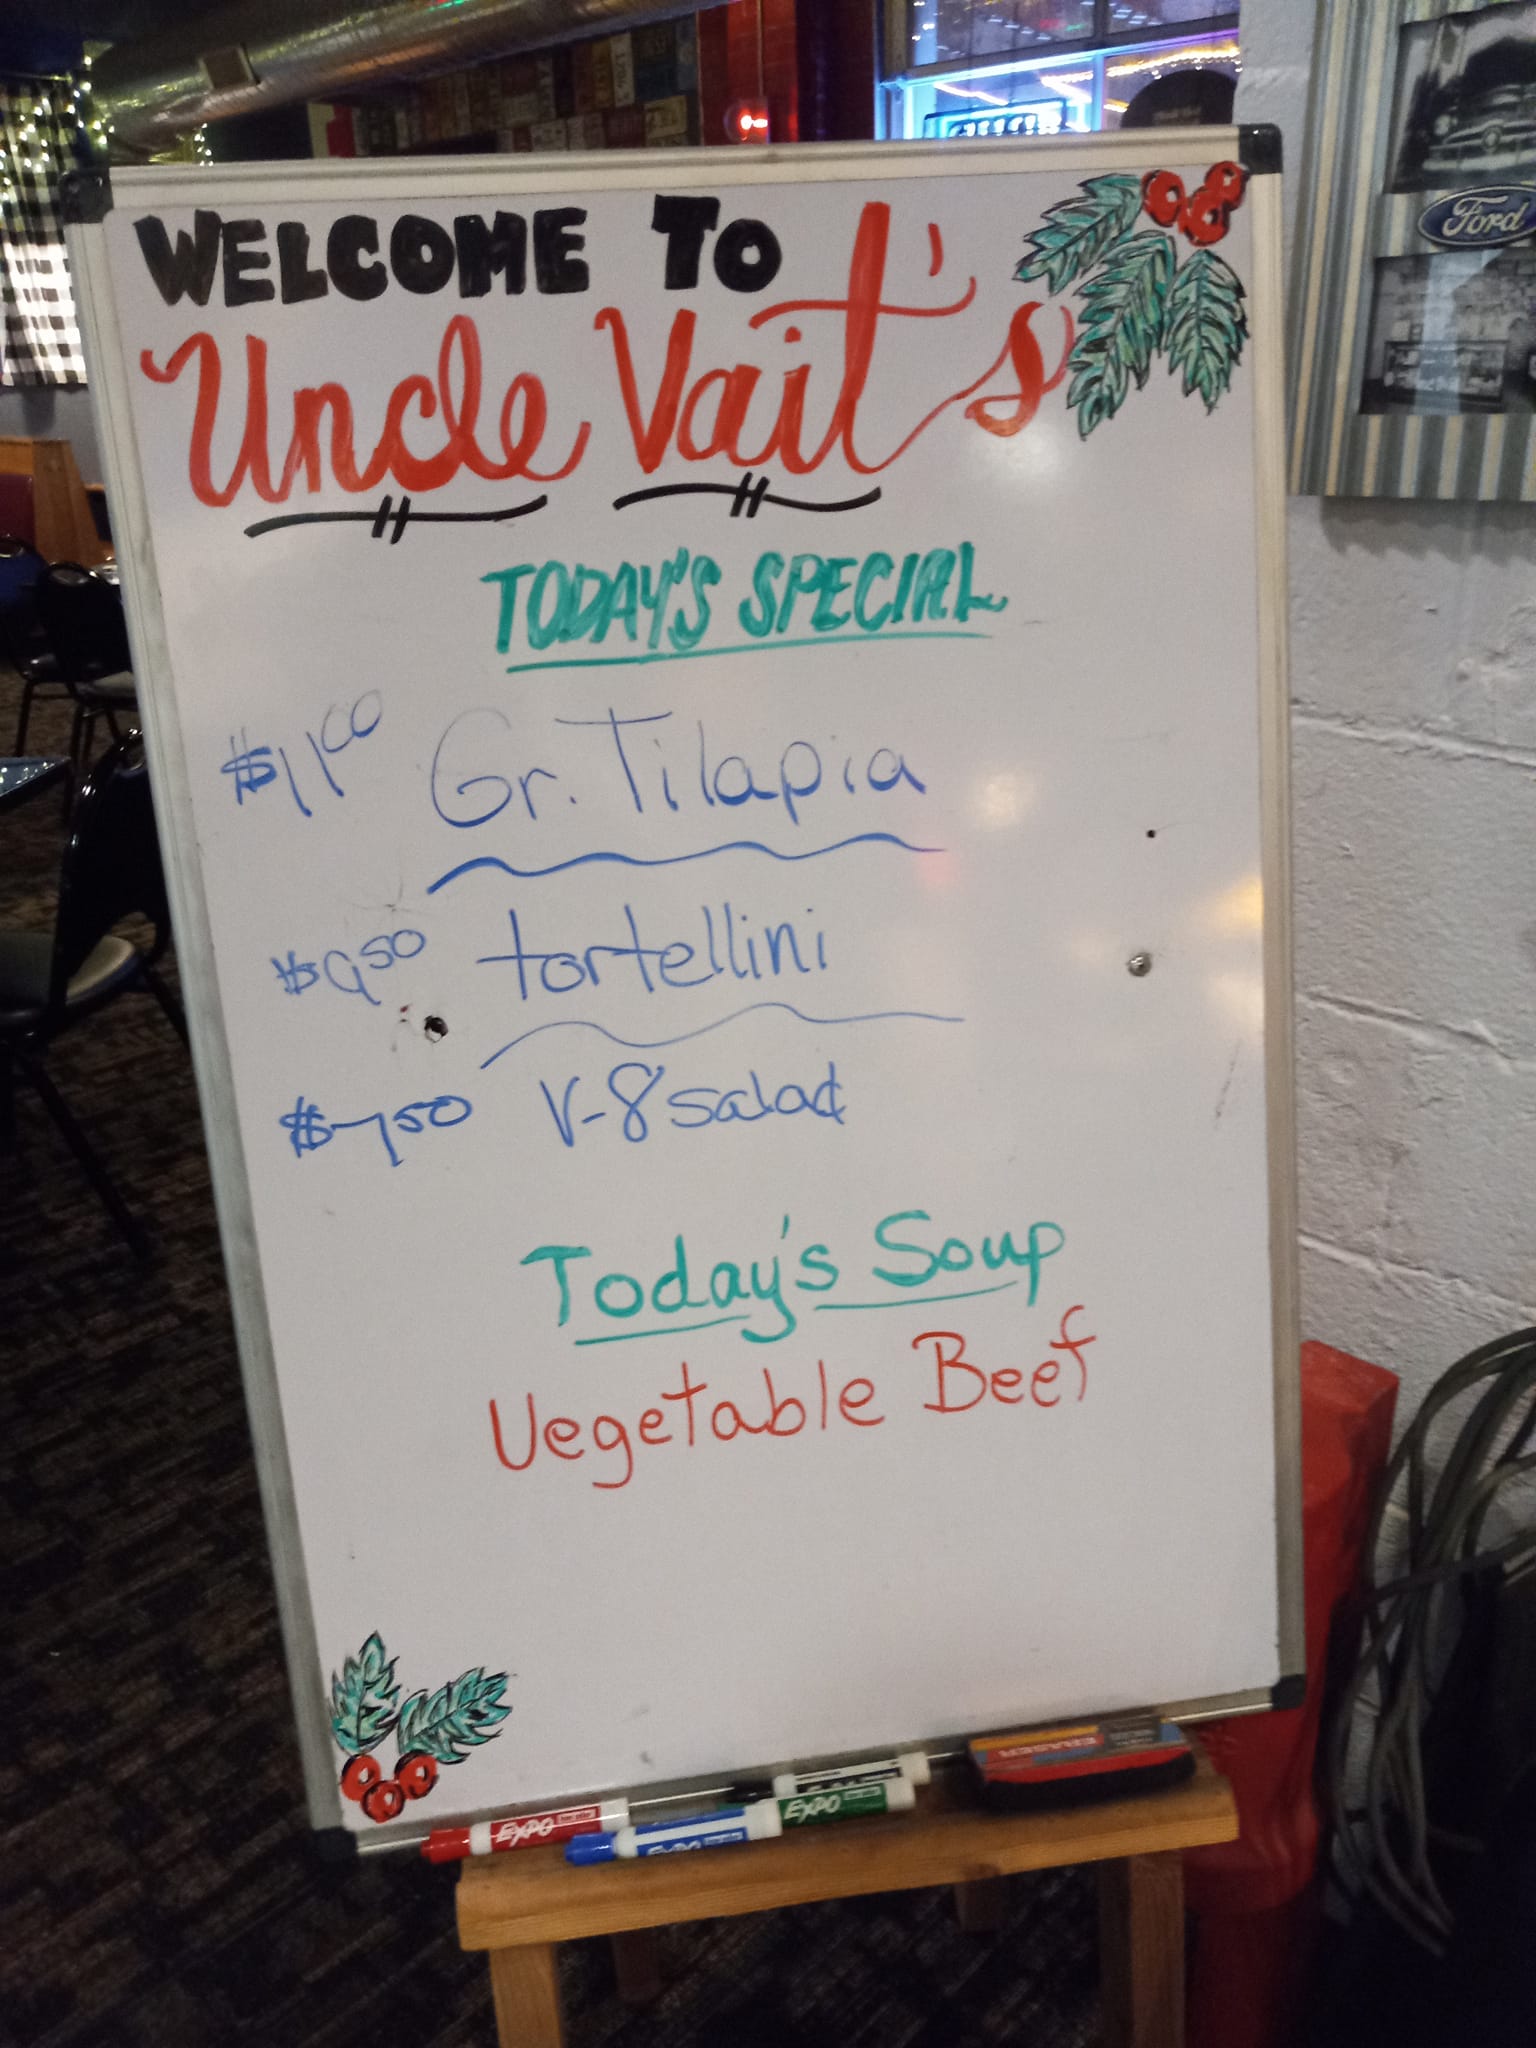 WELCOME TO
Uncle Vait's
TODAY'S SPECIAL
$11.00 Gr. Tilapia
$9.50 tortellini
$7.50 V-8 salad
Today's Soup
Vegetable Beef
Ford
EXPO
EXPO
EXPO
ERASER